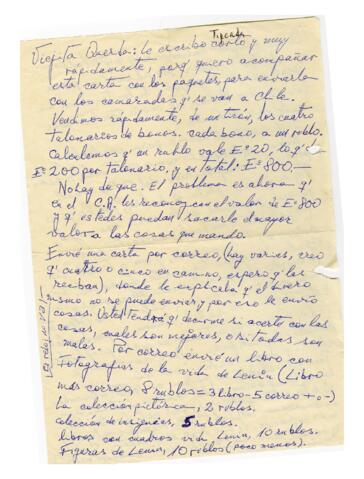 Tipeada
Viejita Querida: le escribo corto y muy
rápidamente, porq' quiero acompañar
esta carta con los paquetes, para enviarla
con los camaradas q' se van a Chile.
Vendimos rápidamente, de un tirón, los cuatro
talonarios de bonos. cada bono, a un rublo.
Calculemos q' un rublo vale Eº20, lo q' es
Eº200 por talonario, y en total: Eº800.—
No hay de que. El problema es ahora q'
en el C.A. les reconozcan el valor de Eº800
y q' ustedes puedan sacarle el mayor
valor a las cosas que mando.
Envié una carta por correo, (hay varias, creo
q' cuatro o cinco en camino, espero q' las
reciban), donde le explicaba q' el dinero
mismo no se puede enviar, y por eso le envío
cosas. Usted tendrá q' decirme si acerté con las
cosas, cuales son mejores, o si todas son
malas. Por correo envié un libro con
Fotografías de la vida de Lenin (Libro
más correo, 8 rublos = 3 libro - 5 correo + o -)
La colección pictórica, 2 rublos.
colección de insignias, 5 rublos.
libros con cuadros vida Lenin, 10 rublos.
Figuras de Lenin, 10 rublos (poco menos).